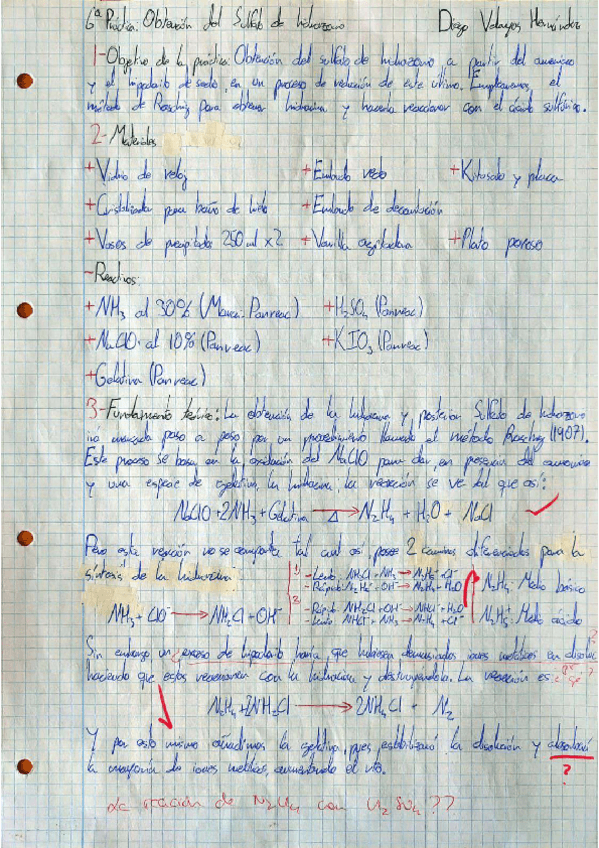 6ª Práctica: Obtención del Sulfato de hidrazonio Diego Hernández
1-Objetivo de la práctica: Obtención del sulfato de hidrazonio a partir del amoniaco
y el hipoclorito de sodio, en un proceso de reducción de este último. Emplearemos el
método de Rasching para obtener hidracina y hacerla reaccionar con el ácido sulfúrico.
2-Materiales
+Vidrio de reloj +Embudo +Kitasato y placa
+Cristalizador para baño de hielo +Embudo de decantación
+Vasos de precipitado 250 ml x2 +Varilla agitadora +Plato poroso
-Reactivos:
+NH3 al 30% (Marca: Panreac) +H2SO4 (Panreac)
+NaClO al 10% (Panreac) +KIO3 (Panreac)
+Gelatina (Panreac)
3-Fundamento teórico: La obtención de la hidracina y posterior Sulfato de hidrazonio
paso a paso por un procedimiento llamado el método Rasching (1907).
Este proceso se basa en la oxidación del NaClO para dar, en presencia del amoniaco
y una especie de gelatina, la hidracina, la reacción se ve tal que así:
NaClO + 2NH3 + Gelatina →Δ N2H4 + H2O + NaCl
Pero esta reacción no se comporta tal cual así, posee 2 caminos diferenciados para la
síntesis de la hidracina:
1 -Lento: NH2Cl + NH3 → N2H5+ + Cl-
-Rápido: N2H5+ + OH- → N2H4 + H2O
N2H4: Medio básico
NH3 + ClO- → NH2Cl + OH-
2 -Rápido: NH2Cl + OH- → NHCl- + H2O
-Lento: NHCl- + NH3 → N2H4 + Cl-
N2H5+: Medio ácido
Sin embargo un exceso de hipoclorito haría que hubiesen demasiados iones metálicos en disolu. ?
haciendo que estos reaccionen con la hidracina y destruyéndola. La reacción es: ?
N2H4 + 2NH2Cl → 2NH4Cl + N2
Y por esto mismo añadimos la gelatina, pues estabilizará la disolución y absorberá
la mayoría de iones metálicos, aumentando el rto. ?
La reacción de N2H4 con H2SO4 ??